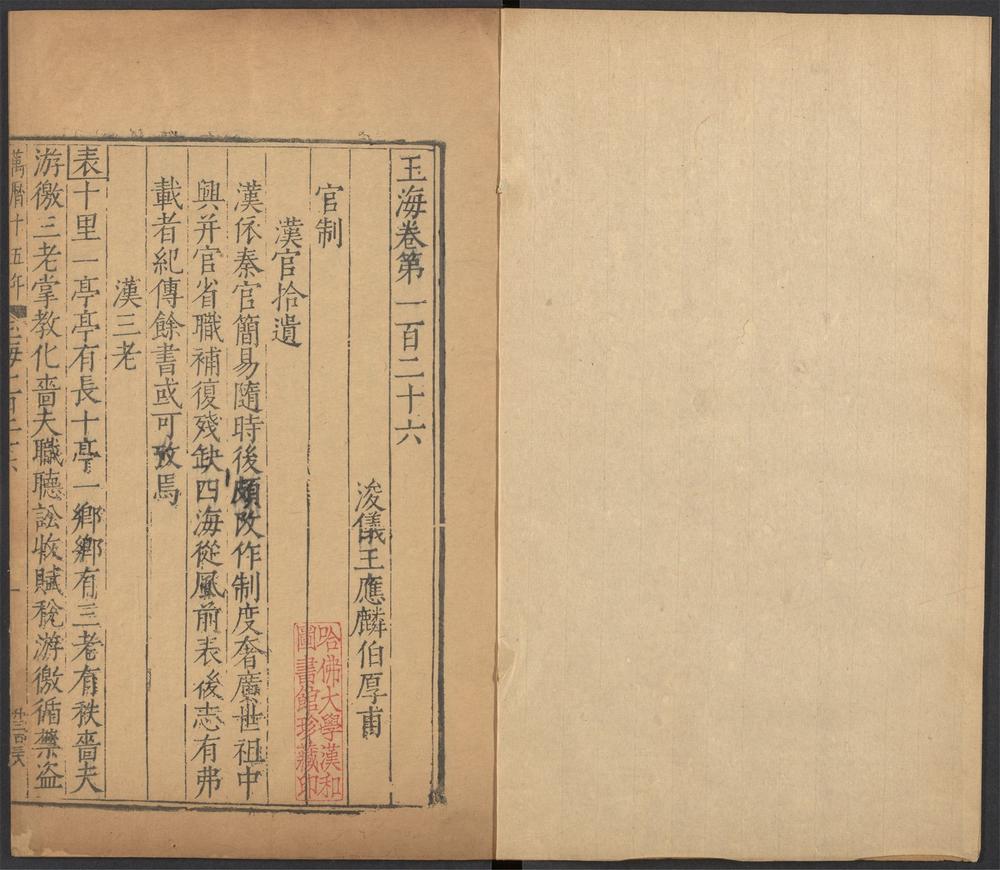 玉海卷第一百二十六
浚儀王應麟伯厚甫
官制
漢官拾遺
漢依秦官簡易隨時後頗改作制度奢廣世祖中
興并官省職補復殘缺四海從風前表後志有弗
載者紀傳餘書或可攷焉
漢三老
表十里一亭亭有長十亭一鄉鄉有三老有秩嗇夫
游徼三老掌教化嗇夫職聽訟收賦稅游徼循禁盜
萬曆十五年
玉海一百二十六
一
哈佛大學漢和
圖書館珍藏印